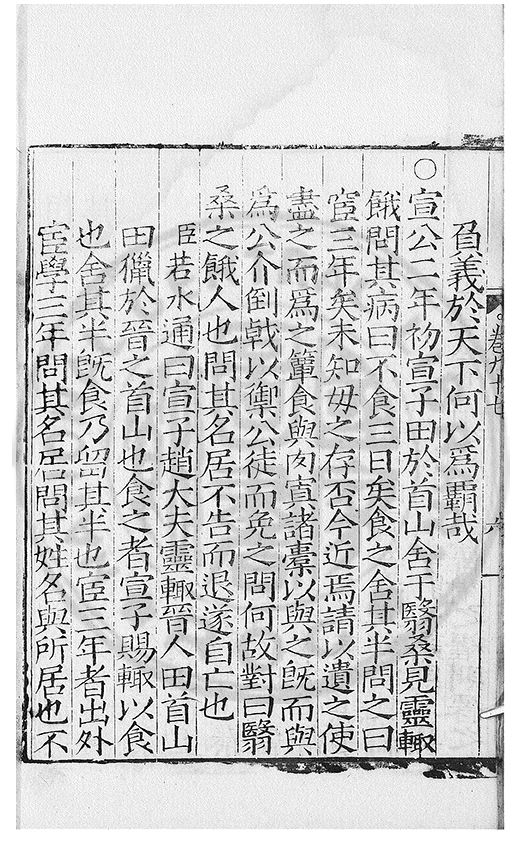 負義於天下何以爲覇哉
○宣公二年初宣子田於首山舍于翳桑見靈輙
餓問其病曰不食三日矣食之舍其半問之曰
宦三年矣未知毋之存否今近焉請以遺之使
盡之而爲之簞食與肉寘諸橐以與之旣而與
爲公介倒戟以禦公徒而免之問何故對曰翳
桑之餓人也問其名居不告而退遂自亡也
臣若水通曰宣子趙大夫靈輙晉人田首山
田獵於晉之首山也食之者宣子賜輙以食
也舍其半旣食乃留其半也宦三年者出外
宦學三年問其名居問其姓名與所居也不